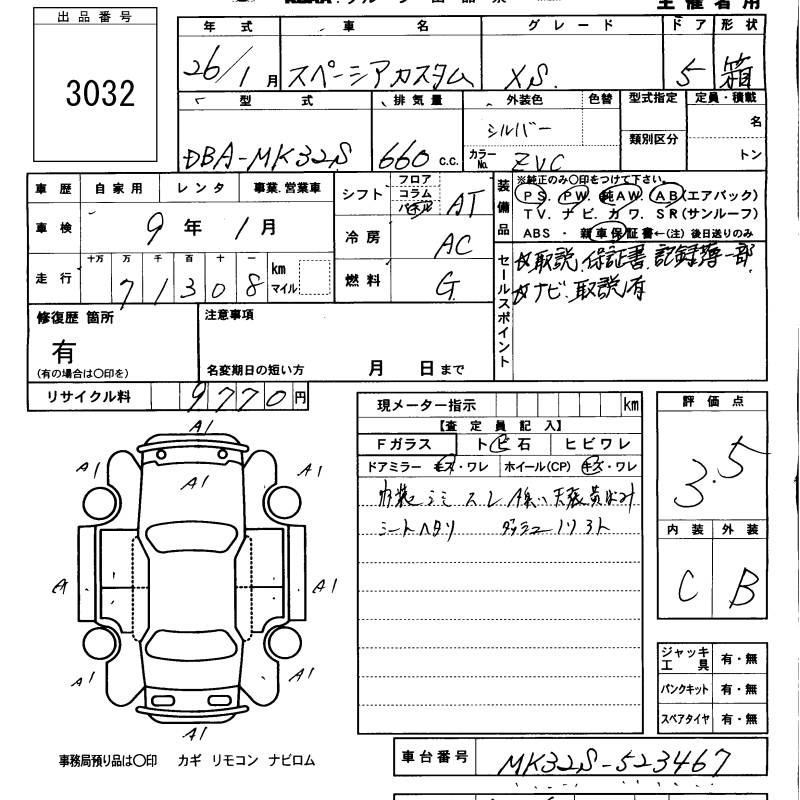 出品番号
3032
年式 車名 グレード ドア 形状
26/1月 スペーシアカスタム XS. 5 箱
型式 排気量 外装色 色替 型式指定 定員・積載
シルバー 名
類別区分
DBA-MK32S 660 c.c. カラーNo. ZVC トン
車歴 自家用 レンタ 事業.営業車
車検 9年 1月
走行 十万 万 千 百 十 一
71308 km マイル
シフト フロア コラム パネル AT
冷房 AC
燃料 G
装備品 ※純正のみ〇印をつけて下さい。
PS. PW. 純AW. AB(エアバック)
TV. ナビ. カワ. SR(サンルーフ)
ABS・新車保証書←(注)後日送りのみ
セールスポイント
取説.保証書.記録簿一部.
ナビ.取説有
修復歴 箇所
有
(有の場合は〇印を)
注意事項
名変期日の短い方 月 日まで
リサイクル料 9770円
現メーター指示 km
【査定員記入】
Fガラス ト ビ 石 ヒビワレ
ドアミラー キズ・ワレ ホイール(CP) キズ・ワレ
内装シミ スレ
シートヘタリ
評価点
3.5
内装 外装
C B
A1
A1 A1 A1
A A1 A1
A1 A1
A1
ジャッキ工具 有・無
パンクキット 有・無
スペアタイヤ 有・無
事務局預り品は〇印 カギ リモコン ナビロム
車台番号 MK32S-523467